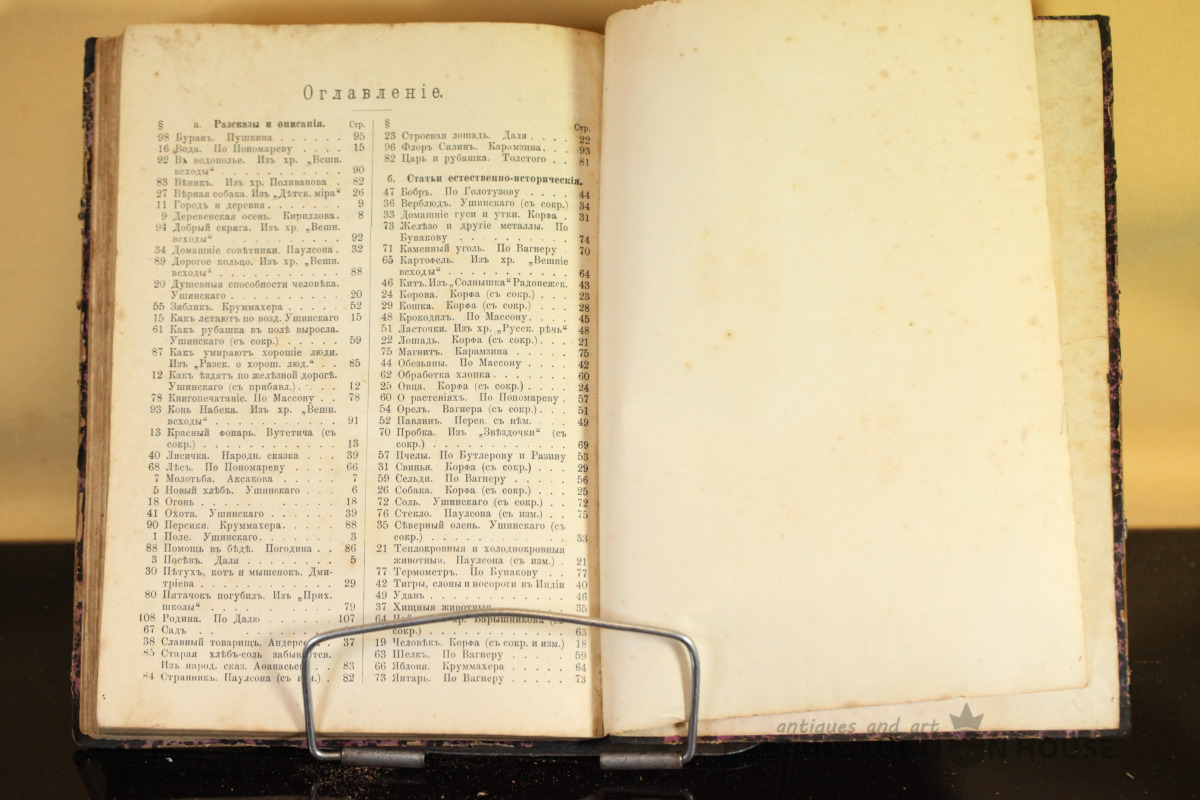 Оглавленіе.
§ а. Разсказы и описанія. Стр.
98 Буранъ. Пушкина . . . . . . 95
16 Вода. По Пономареву . . . . 15
92 Въ водополье. Изъ хр. „Вешн.
всходы“ . . . . . . . . . . 90
83 Вѣникъ. Изъ хр. Поливанова . 82
27 Вѣрная собака. Изъ „Дѣтск. міра“ 26
11 Городъ и деревня . . . . . . . 9
9 Деревенская осень. Кириллова. 8
94 Добрый скряга. Изъ хр. „Вешн.
всходы“ . . . . . . . . . . 92
34 Домашніе совѣтники. Паулсона . 32
89 Дорогое кольцо. Изъ хр. „Вешн.
всходы“ . . . . . . . . . . 88
20 Душевныя способности человѣка.
Ушинскаго . . . . . . . . . . 20
55 Зябликъ. Круммахера . . . . . 52
15 Какъ летаютъ по возд. Ушинскаго 15
61 Какъ рубашка въ полѣ выросла.
Ушинскаго (съ сокр.) . . . . . 59
87 Какъ умираютъ хорошіе люди.
Изъ „Разск. о хорош. люд.“ . . 85
12 Какъ ѣздятъ по желѣзной дорогѣ.
Ушинскаго (съ прибавл.) . . . . 12
78 Книгопечатаніе. По Массону . . 78
93 Конь Набека. Изъ хр. „Вешн.
всходы“ . . . . . . . . . . 91
13 Красный фонарь. Вутетича (съ
сокр.) . . . . . . . . . . . 13
40 Лисичка. Народн. сказка . . . 39
68 Лѣсъ. По Пономареву . . . . 66
7 Молотьба. Аксакова . . . . . 7
5 Новый хлѣбъ. Ушинскаго . . . 6
18 Огонь . . . . . . . . . . . 18
41 Охота. Ушинскаго . . . . . . 39
90 Персики. Круммахера. . . . . 88
1 Поле. Ушинскаго. . . . . . . 3
88 Помощь въ бѣдѣ. Погодина . . 86
3 Посѣвъ. Даля . . . . . . . . 5
30 Пѣтухъ, котъ и мышенокъ. Дми-
тріева . . . . . . . . . . . 29
80 Пятачокъ погубилъ. Изъ „Прих.
школы“ . . . . . . . . . . . 79
108 Родина. По Далю . . . . . . 107
67 Садъ . . . . . . . . . . .
38 Славный товарищъ. . 37
85 Старая хлѣбъ-соль
Изъ народ. сказ. . . 83
84 Странникъ. Паулсона (съ изм.) . 82
§ Стр.
23 Строевая лошадь. Даля . . . . 22
96 Флоръ Силинъ. Карамзина. . . 93
82 Царь и рубашка. Толстого . . 81
б. Статьи естественно-историческія.
47 Бобръ. По Голотузову . . . . 44
36 Верблюдъ. Ушинскаго (съ сокр.) 34
33 Домашніе гуси и утки. Корфа . 31
73 Желѣзо и другіе металлы. По
Бунакову . . . . . . . . . . 74
71 Каменный уголь. По Вагнеру . 70
65 Картофель. Изъ хр. „Вешніе
всходы“ . . . . . . . . . . . 64
46 Китъ. Изъ „Солнышка“ Радонежск. 43
24 Корова. Корфа (съ сокр.) . . . 23
29 Кошка. Корфа (съ сокр.) . . . 28
48 Крокодилъ. По Массону. . . . 45
51 Ласточки. Изъ хр. „Русск. рѣчь“ 48
22 Лошадь. Корфа (съ сокр.). . . 21
75 Магнитъ. Карамзина . . . . . 75
44 Обезьяны. По Массону . . . . 42
62 Обработка хлопка . . . . . . 60
25 Овца. Корфа (съ сокр.) . . . . 24
60 О растеніяхъ. По Пономареву . 57
54 Орелъ. Вагнера (съ сокр.). . . 51
52 Павлинъ. Перев. съ нѣм. . . . 49
70 Пробка. Изъ „Звѣздочки“ (съ
сокр.) . . . . . . . . . . . 69
57 Пчелы. По Бутлерову и Разину 53
31 Свинья. Корфа (съ сокр.) . . . 29
59 Сельди. По Вагнеру . . . . . 56
26 Собака. Корфа (съ сокр.) . . . 25
72 Соль. Ушинскаго (съ сокр.) . . 72
76 Стекло. Паулсона (съ изм.) . . 75
35 Сѣверный олень. Ушинскаго (съ
сокр.) . . . . . . . . . . . 33
21 Теплокровныя и холоднокровныя
животныя. Паулсона (съ изм.) . 21
77 Термометръ. По Бунакову . . 77
42 Тигры, слоны и носороги въ Индіи 40
49 Удавъ . . . . . . . . . . . 46
37 Хищныя животныя . . . . . . 35
64 Барышникова (съ
сокр.) . . . . . . . . . . . 63
19 Человѣкъ. Корфа (съ сокр. и изм.) 18
63 Шелкъ. По Вагнеру . . . . . 59
66 Яблоня. Круммахера . . . . . 64
73 Янтарь. По Вагнеру . . . . . 73
antiques and art
AUCTION HOUSE